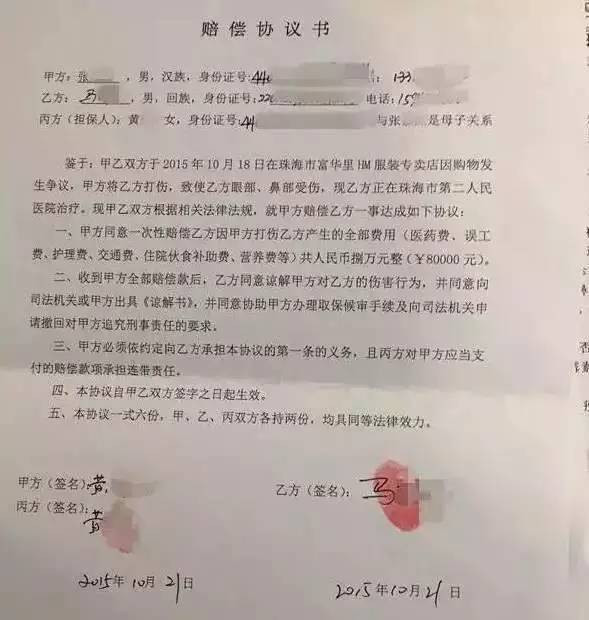 赔偿协议书
甲方：张，男，汉族，身份证号：440 ： 133
乙方：马，男，回族，身份证号：220 电话：159
丙方（担保人）：黄 女，身份证号：44 与张 是母子关系
鉴于：甲乙双方于2015年10月18日在珠海市富华里HM服装专卖店因购物发
生争议，甲方将乙方打伤，致使乙方眼部、鼻部受伤，现乙方正在珠海市第二人民
医院治疗。现甲乙双方根据相关法律法规，就甲方赔偿乙方一事达成如下协议：
一、甲方同意一次性赔偿乙方因甲方打伤乙方产生的全部费用（医药费、误工
费、护理费、交通费、住院伙食补助费、营养费等）共人民币捌万元整（￥80000元）。
二、收到甲方全部赔偿款后，乙方同意谅解甲方对乙方的伤害行为，并同意向
司法机关或甲方出具《谅解书》，并同意协助甲方办理取保候审手续及向司法机关申
请撤回对甲方追究刑事责任的要求。
三、甲方必须依约定向乙方承担本协议的第一条的义务，且丙方对甲方应当支
付的赔偿款项承担连带责任。
四、本协议自甲乙双方签字之日起生效。
五、本协议一式六份，甲、乙、丙双方各持两份，均具同等法律效力。
甲方（签名）：黄
乙方（签名）：马
丙方（签名）：黄
2015年10月21日
2015年10月21日